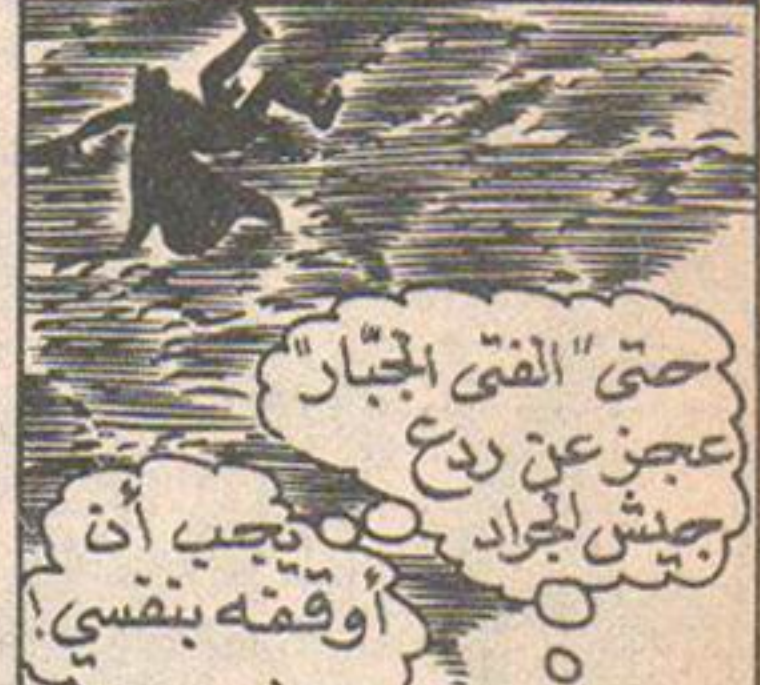 حتّى "الفتى الجبّار"
عجز عن ردع
جيش الجراد
يجب أن
أوقّفه بنفسي!